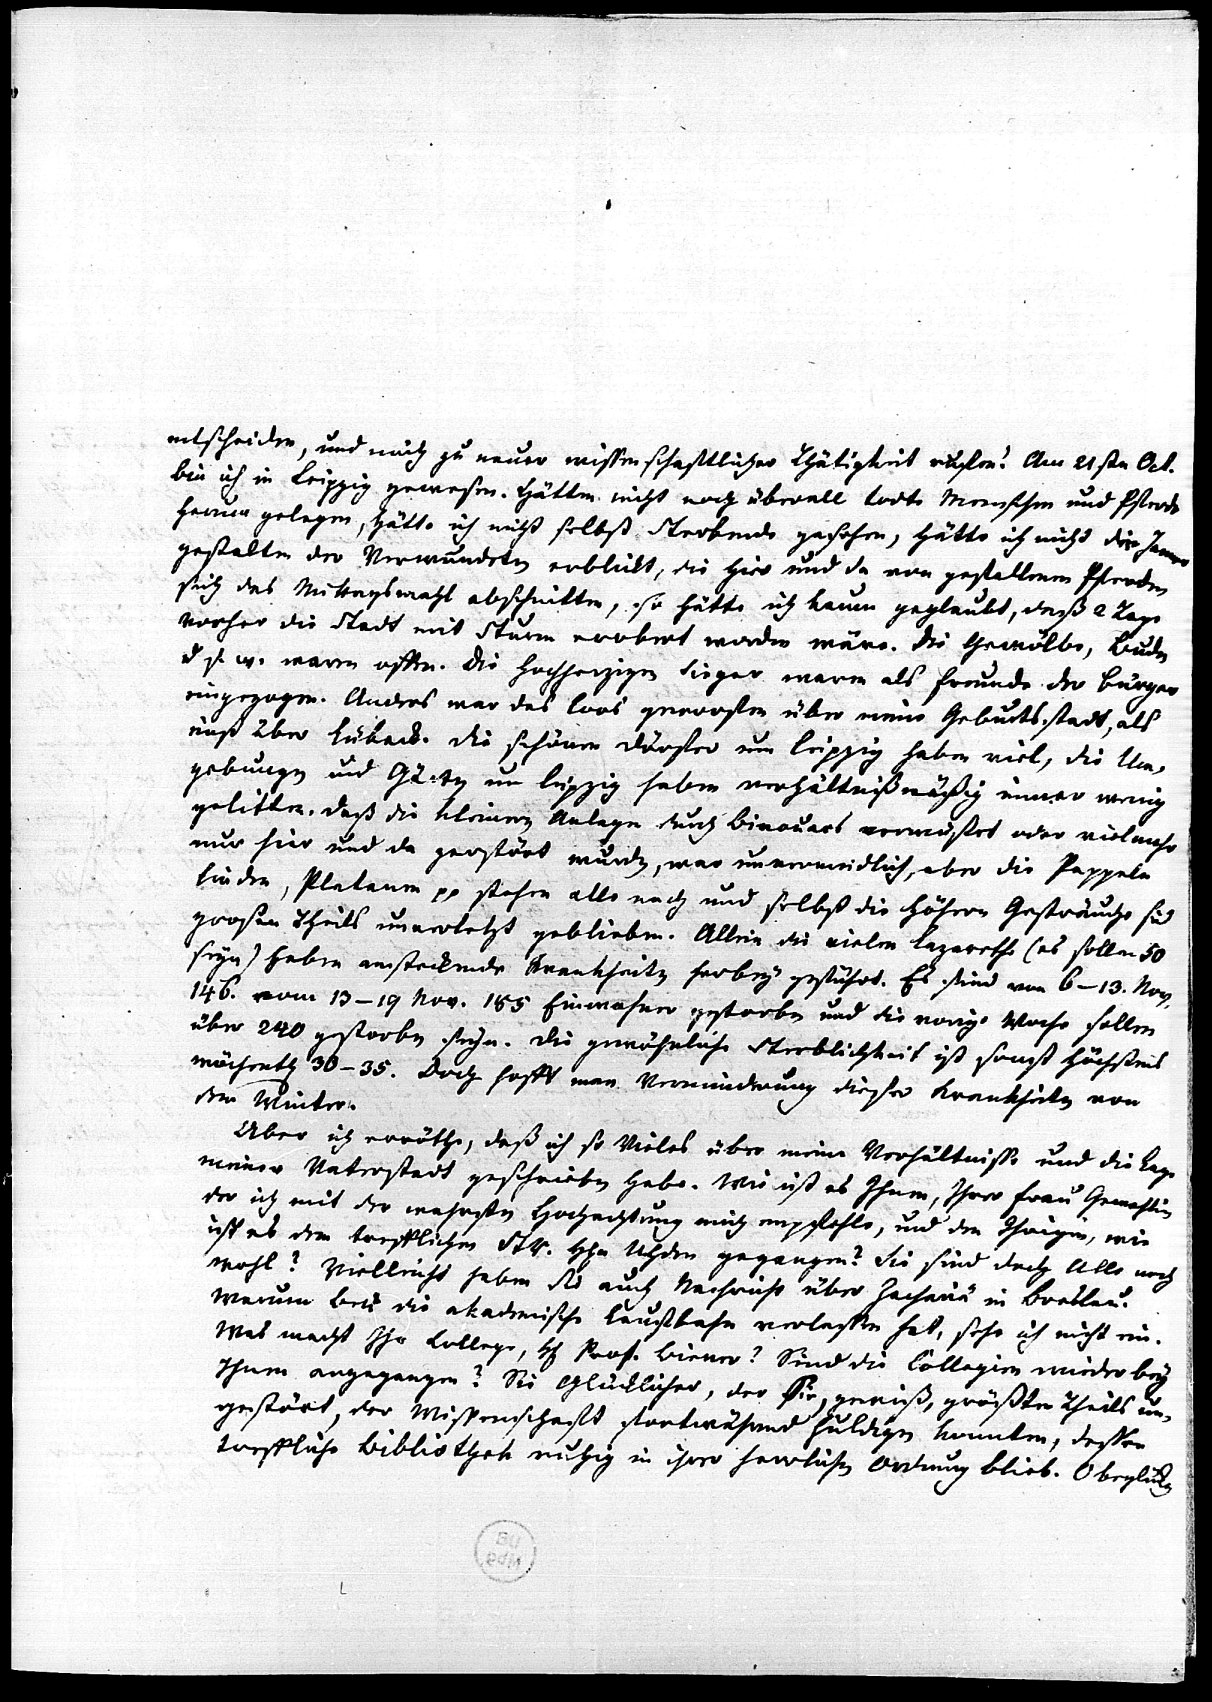 entscheiden, und mich zu neuer wissenschaftlicher Thätigkeit rufen! Am 21sten Oct.
bin ich in Leipzig gewesen. Hätten nicht noch überall todte Menschen und Pferde
herum gelegen, hätte ich nicht selbst Sterbende gesehen, hätte ich nicht die Jammer
gestalten der Verwundeten erblickt, die hier und da von gefallenen Pferden
sich das Mittagsmahl abschnitten, so hätte ich kaum geglaubt, daß 2 Tage
vorher die Stadt mit Sturm erobert worden wäre. Die Gewölbe, Buden
u. s. w. waren offen. Die hochherzigen Sieger waren als Freunde der Bürger
eingezogen. Anders war das Loos geworfen über meine Geburtsstadt, als
einst über Lübeck. Die schönen Dörfer um Leipzig haben viel, die Um-
gebungen und Gärten um Leipzig haben verhältnißmäßig immer wenig
gelitten. Daß die kleinern Anlagen durch Bivouacs verwüstet oder vielmehr
nur hier und da zerstört wurden, war unvermeidlich, aber die Pappeln
Linden, Platanen pp stehen alle noch und selbst die höhern Gesträuche sind
großen Theils unverletzt geblieben. Allein die vielen Lazarethe (es sollen 50
seyn) haben ansteckende Krankheiten herbey geführt. Es sind von 6–13. Nov.
146. vom 13–19 Nov. 185 Einwohner gestorben und die vorige Woche sollen
über 240 gestorben seyn. Die gewöhnliche Sterblichkeit ist sonst höchstens
wöchentlich 30–35. Doch hofft man Verminderung dieser Krankheiten von
dem Winter.
Aber ich erröthe, daß ich so Vieles über meine Verhältnisse und die Lage
meiner Vaterstadt geschrieben habe. Wie ist es Ihnen, Ihrer Frau Gemahlin
der ich mit der wahrsten Hochachtung mich empfehle, und den Ihrigen, wie
ist es dem trefflichen Hn Uhden gegangen? Sie sind doch Alle noch
wohl? Vielleicht haben Sie auch Nachricht über Zachariä in Breslau.
Warum die akademische Laufbahn verlassen hat, sehe ich nicht ein.
Was macht Ihr College, H Prof. Biener? Sind die Collegien wieder bey
Ihnen angegangen? Sie Glücklicher, der Sie, gewiß, größten Theils un-
gestört, der Wissenschaft fortwährend huldigen konnten, dessen
treffliche Bibliothek ruhig in ihrer herrlichen Ordnung blieb. O beglücken